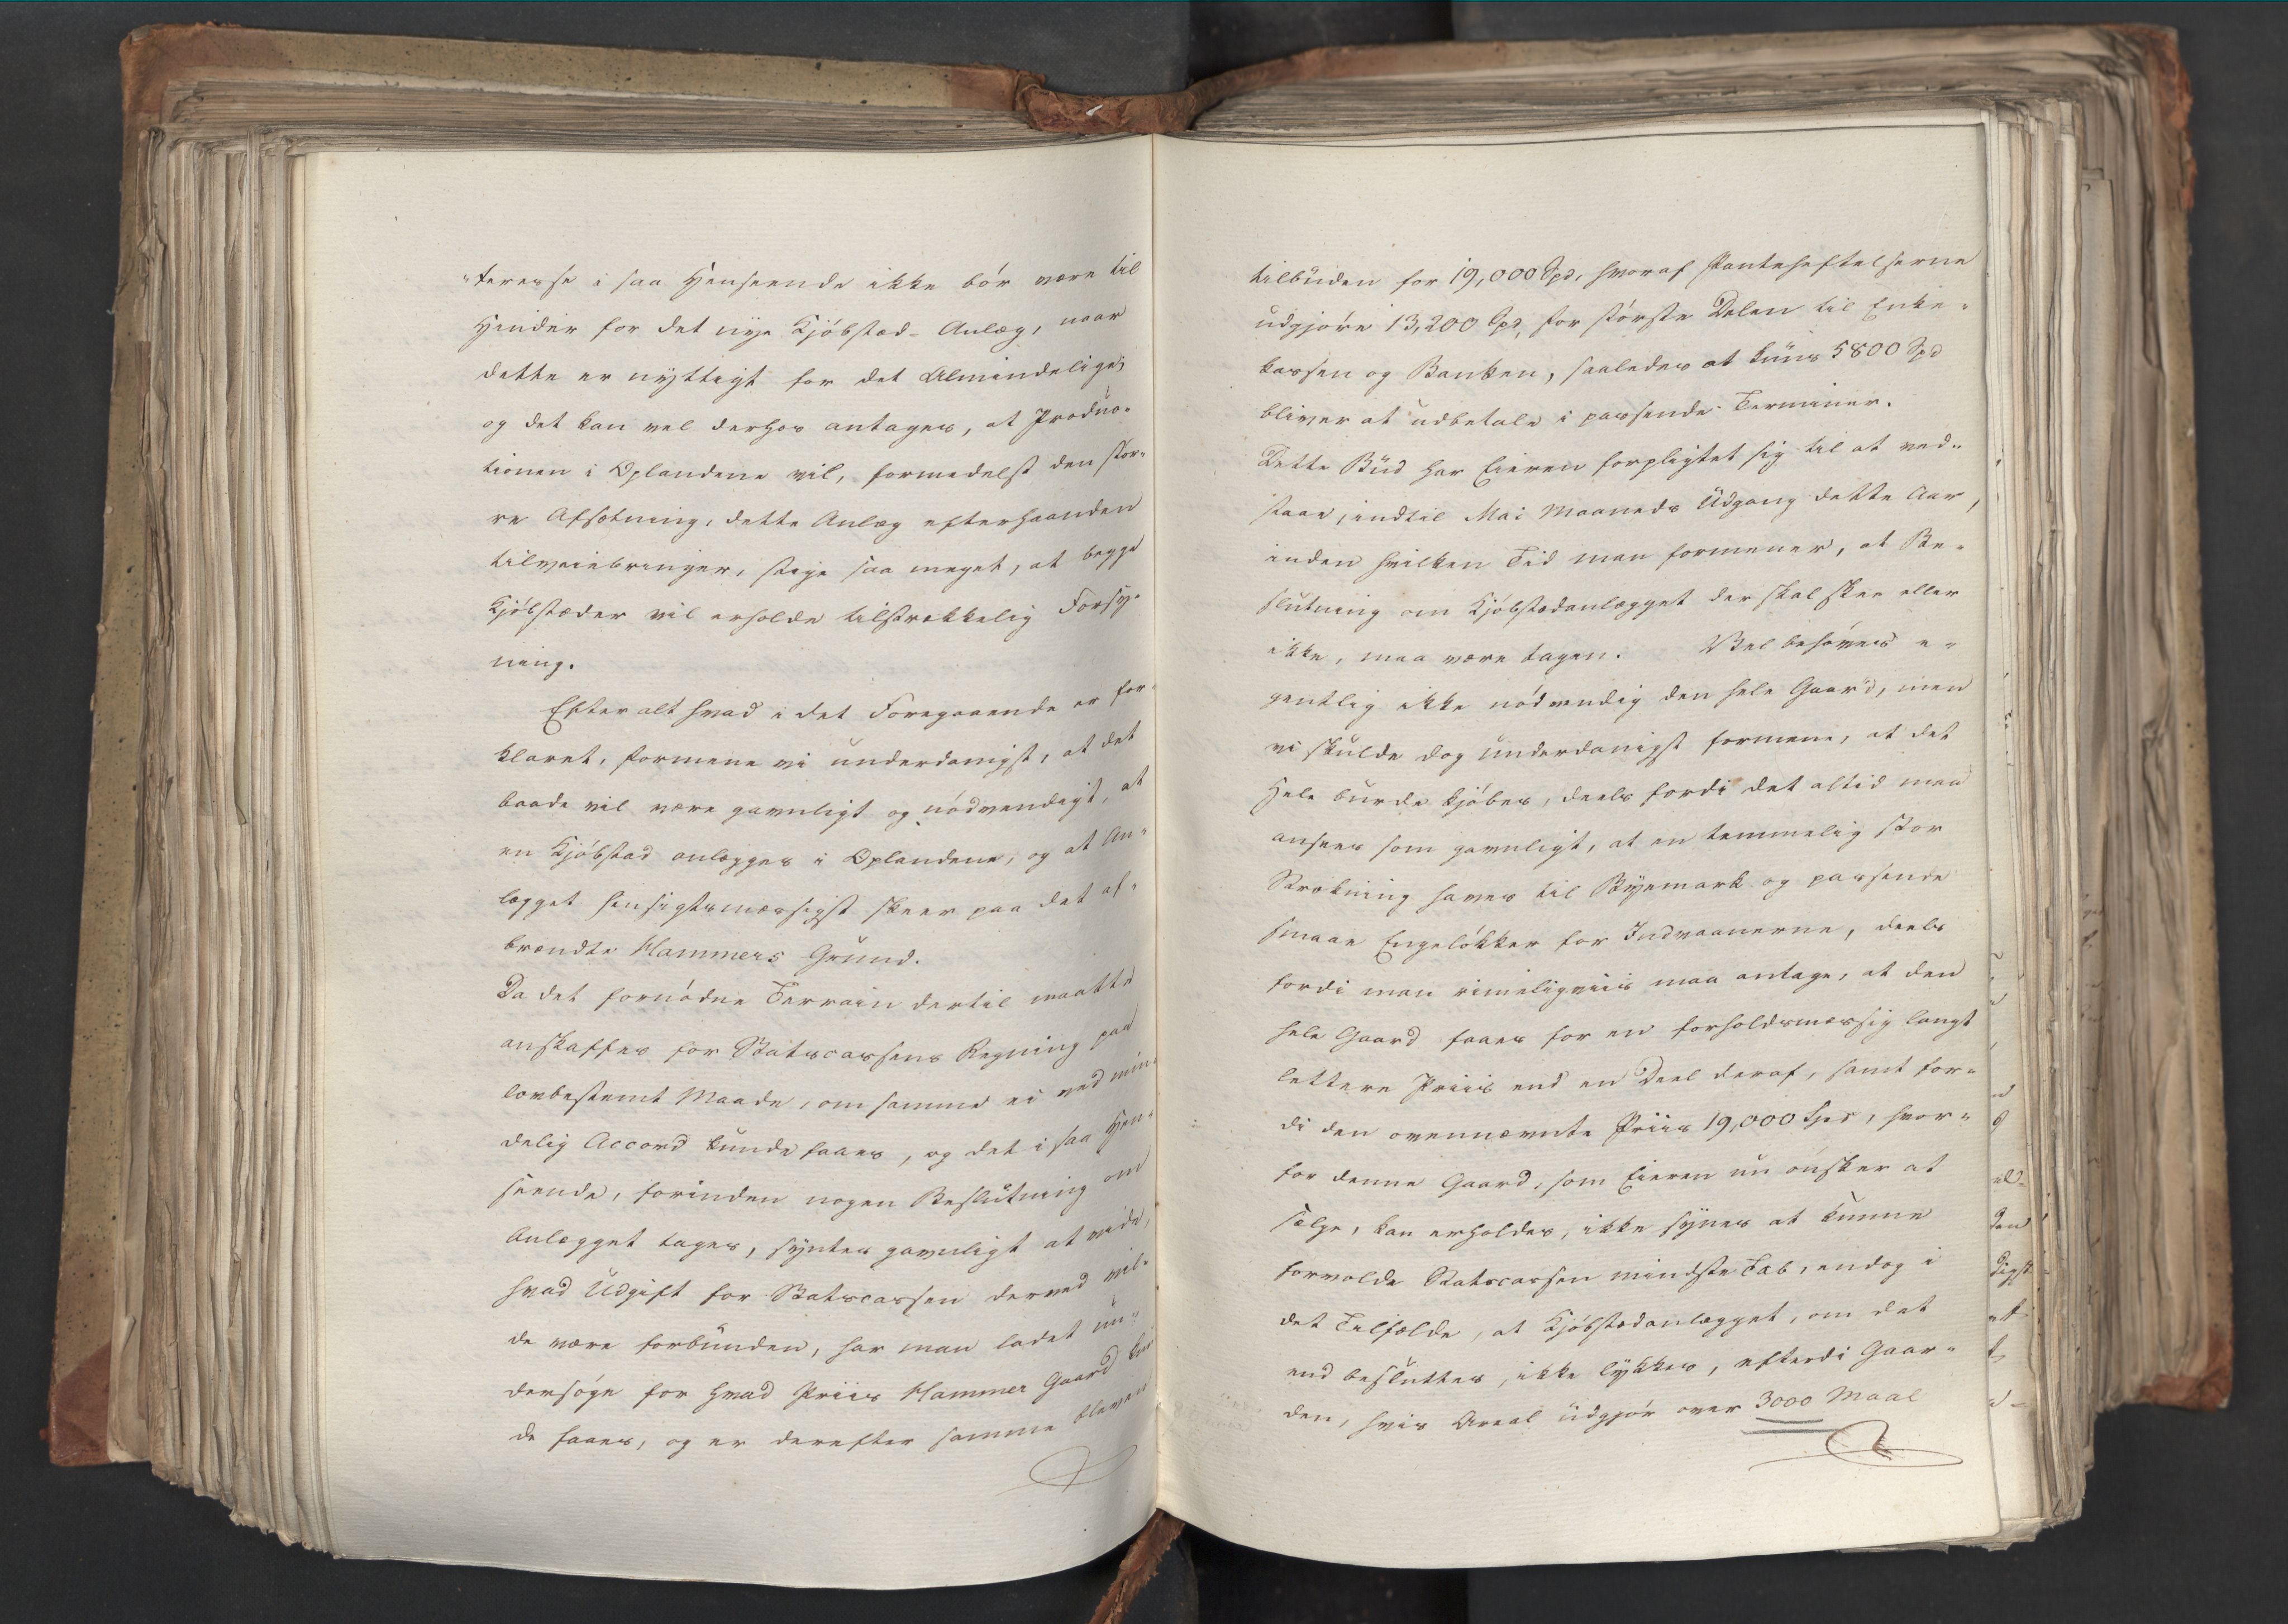 "teresse i saa Henseende ikke bör være til
Hinder for det nye Kjöbstad-Anlæg, naar
dette er nyttigt for det Almindelige;
og det kan vel derhos antages, at Produc-
tionen i Oplandene vil, formedelst den stör-
re Afsætning, dette Anlæg efterhaanden
tilveiebringer, stige saa meget, at begge
Kjöbstæder vil erholde tilstrækkelig Forsy-
ning.
Efter alt hvad i det Foregaaende er for-
klaret, formene vi underdanigst, at det
baade vil være gavnligt og nödvendigt, at
en Kjöbstad anlægges i Oplandene, og at An-
lægget hensigtsmæssigst skeer paa det af-
brændte Hammers Grund.
Da det fornödne Terrain dertil maatte
anskaffes for Statscassens Regning paa
lovbestemt Maade, om samme ei ved min-
delig Accord kunde faaes, og det i saa Hen-
seende, forinden nogen Beslutning om
Anlægget tages, syntes gavnligt at vide,
hvad Udgift for Statscassen derved vil-
de være forbunden, har man ladet un-
dersöge for hvad Priis Hammer Gaard kun-
de faaes, og er derefter samme bleven
tilbuden for 19,000 Spd, hvoraf Panteheftelserne
udgjöre 13,200 Spd, for störste Delen til Enke-
kassen og Banken, saaledes at kuns 5800 Spd
bliver at udbetale i passende Terminer.
Dette Bud har Eieren forpligtet sig til at ved-
staae, indtil Mai Maaneds Udgang dette Aar,
inden hvilken Tid man formener, at Be-
slutning om Kjöbstadanlægget der skal skee eller
ikke, maa være tagen. Vel behöves e-
gentlig ikke nödvendig den hele Gaard, men
vi skulde dog underdanigst formene, at det
Hele burde kjöbes, deels fordi det altid maa
ansees som gavnligt, at en temmelig stor
Strækning haves til Byemark og passende
smaae Engelökker for Indvaanerne, deels
fordi man rimeligviis maa antage, at den
hele Gaard faaes for en forholdsmæssig langt
lettere Priis end en Deel deraf, samt for-
di den ovennævnte Priis 19,000 Spd, hvor-
for denne Gaard, som Eieren nu önsker at
sælge, kan erholdes, ikke synes at kunne
forvolde Statscassen mindste Tab, endog i
det Tilfælde, at Kjöbstadanlægget, om det
end besluttes, ikke lykkes, efterdi Gaar-
den, hvis Areal udgjör over 3000 Maal